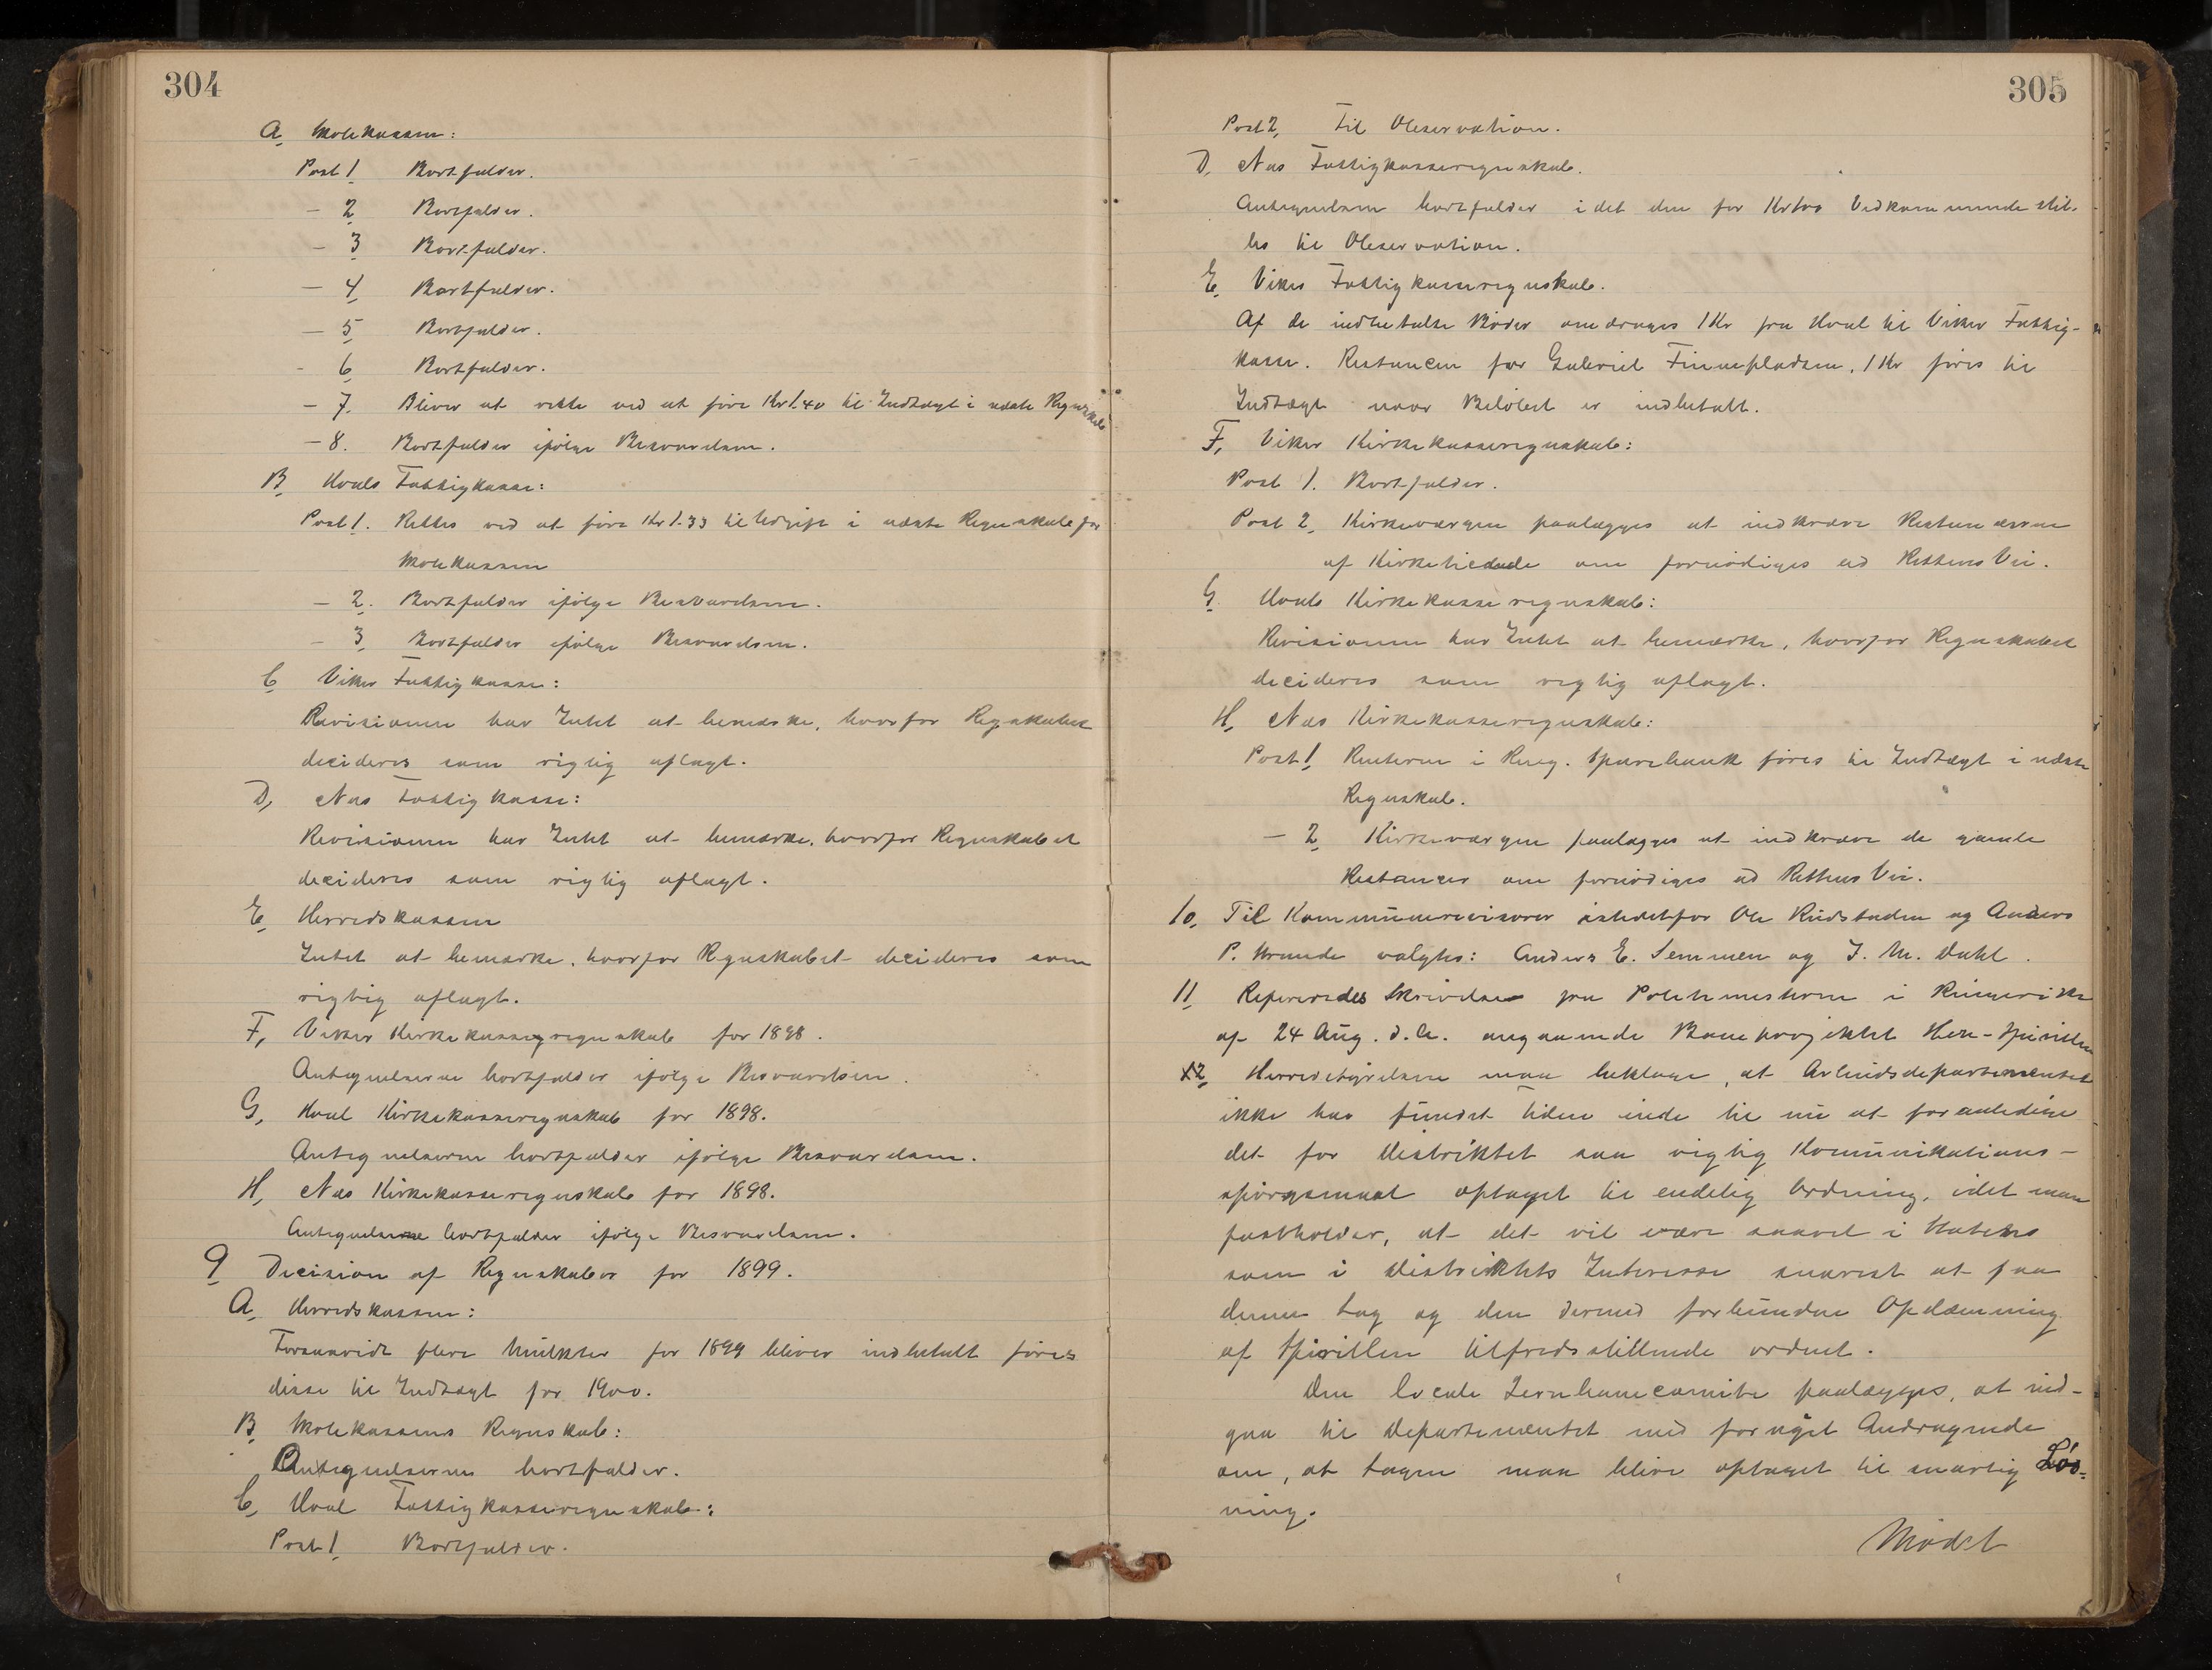 304
A, Skolekassen:
Post 1 Bortfalder.
- 2 Bortfalder.
- 3 Bortfalder.
- 4 Bortfalder.
- 5 Bortfalder.
- 6 Bortfalder.
- 7 Bliver at rette ved at føre Kr 1.40 til Indtægt i næste Regnskab
- 8. Bortfalder ifølge Besvarelsen.
B, Houls Fattigkasse:
Post 1. Rettes ved at føre Kr 1.33 til Udgift i næste Regnskab for
Skolekassen
- 2. Bortfalder ifølge Besvarelsen.
- 3, Bortfalder ifølge Besvarelsen.
C, Viker Fattigkasse:
Revisionen har Intet at bemærke, hvorfor Regnskabet
decideres som rigtig aflagt.
D, Næs Fattigkasse:
Revisionen har Intet at bemærke, hvorfor Regnskabet
decideres som rigtig aflagt.
E, Herredskassen
Intet at bemærke, hvorfor Regnskabet decideres som
rigtig aflagt.
F, Viker Kirkekasseregnskab for 1898.
Antegnelserne bortfalder ifølge Besvarelsen.
G, Houl Kirkekasseregnskab for 1898.
Antegnelserne bortfalder ifølge Besvarelsen.
H, Næs Kirkekasseregnskab for 1898.
Antegnelserne bortfalder ifølge Besvarelsen.
9 Decision af Regnskaber for 1899.
A, Herredskassen:
Forsaavidt flere Mulkter for 1899 bliver indbetalt føres
disse til Indtægt for 1900.
B, Skolekassens Regnskab:
Antegnelserne bortfalder.
C, Houl Fattigkasseregnskab:
Post 1, Bortfalder.
305
Post 2, Til Observation.
D, Næs Fattigkasseregnskab.
Antegnelsen bortfalder idet den for Vedkommende stil-
les til Observation.
E, Vikers Fattigkasseregnskab.
Af de indbetalte Bøder omdrages 1 Kr fra Houl til Viker Fattig-
kasse. Restancen for Gabriel Finnepladsen, 1 Kr føres til
Indtægt naar Beløbet er indbetalt.
F, Viker Kirkekasseregnskab:
Post 1. Bortfalder.
Post 2, Kirkeværgen paalægges at indkræve Restancerne
af Kirketiende om fornødiges ad Rettens Vei.
G, Houls Kirkekasseregnskab:
Revisionen har Intet at bemærke, hvorfor Regnskabet
decideres som rigtig aflagt.
H, Næs Kirkekasseregnskab:
Post 1, Renterne i Ring. Sparebank føres til Indtægt i næste
Regnskab.
- 2, Kirkeværgen paalægges at indkræve de gamle
Restancer om fornødiges ad Rettens Vei.
10, Til Kommunerevisorer istedetfor Ole Rudstaden og Anders
P. valgtes: Anders E. Semmen og J. M. Dahl.
11, Refereredes Skrivelse fra Politimesteren i Ringerike
af 24 Aug. d.A. angaaende Baneprojektet Hen-Spirillen
12, Herredstyrelsen maa beklage, at Arbeidsdepartementet
ikke har fundet Tiden inde til nu at foranledige
det for Distriktet saa vigtig Kommunikations-
spørgsmaal optaget til endelig Ordning, idet man
fastholder, at det vil være saavel i Statens
som i Distriktets Interesse snarest at faa
denne Sag og den dermed forbundne Opdæmning
af Spirillen tilfredsstillende ordnet.
Den locale Jernbanecomite paalægges, at ind-
gaa til Departementet med fornyet Andragende
om, at Sagen maa blive optaget til snarlig Løs-
ning.
Mødet